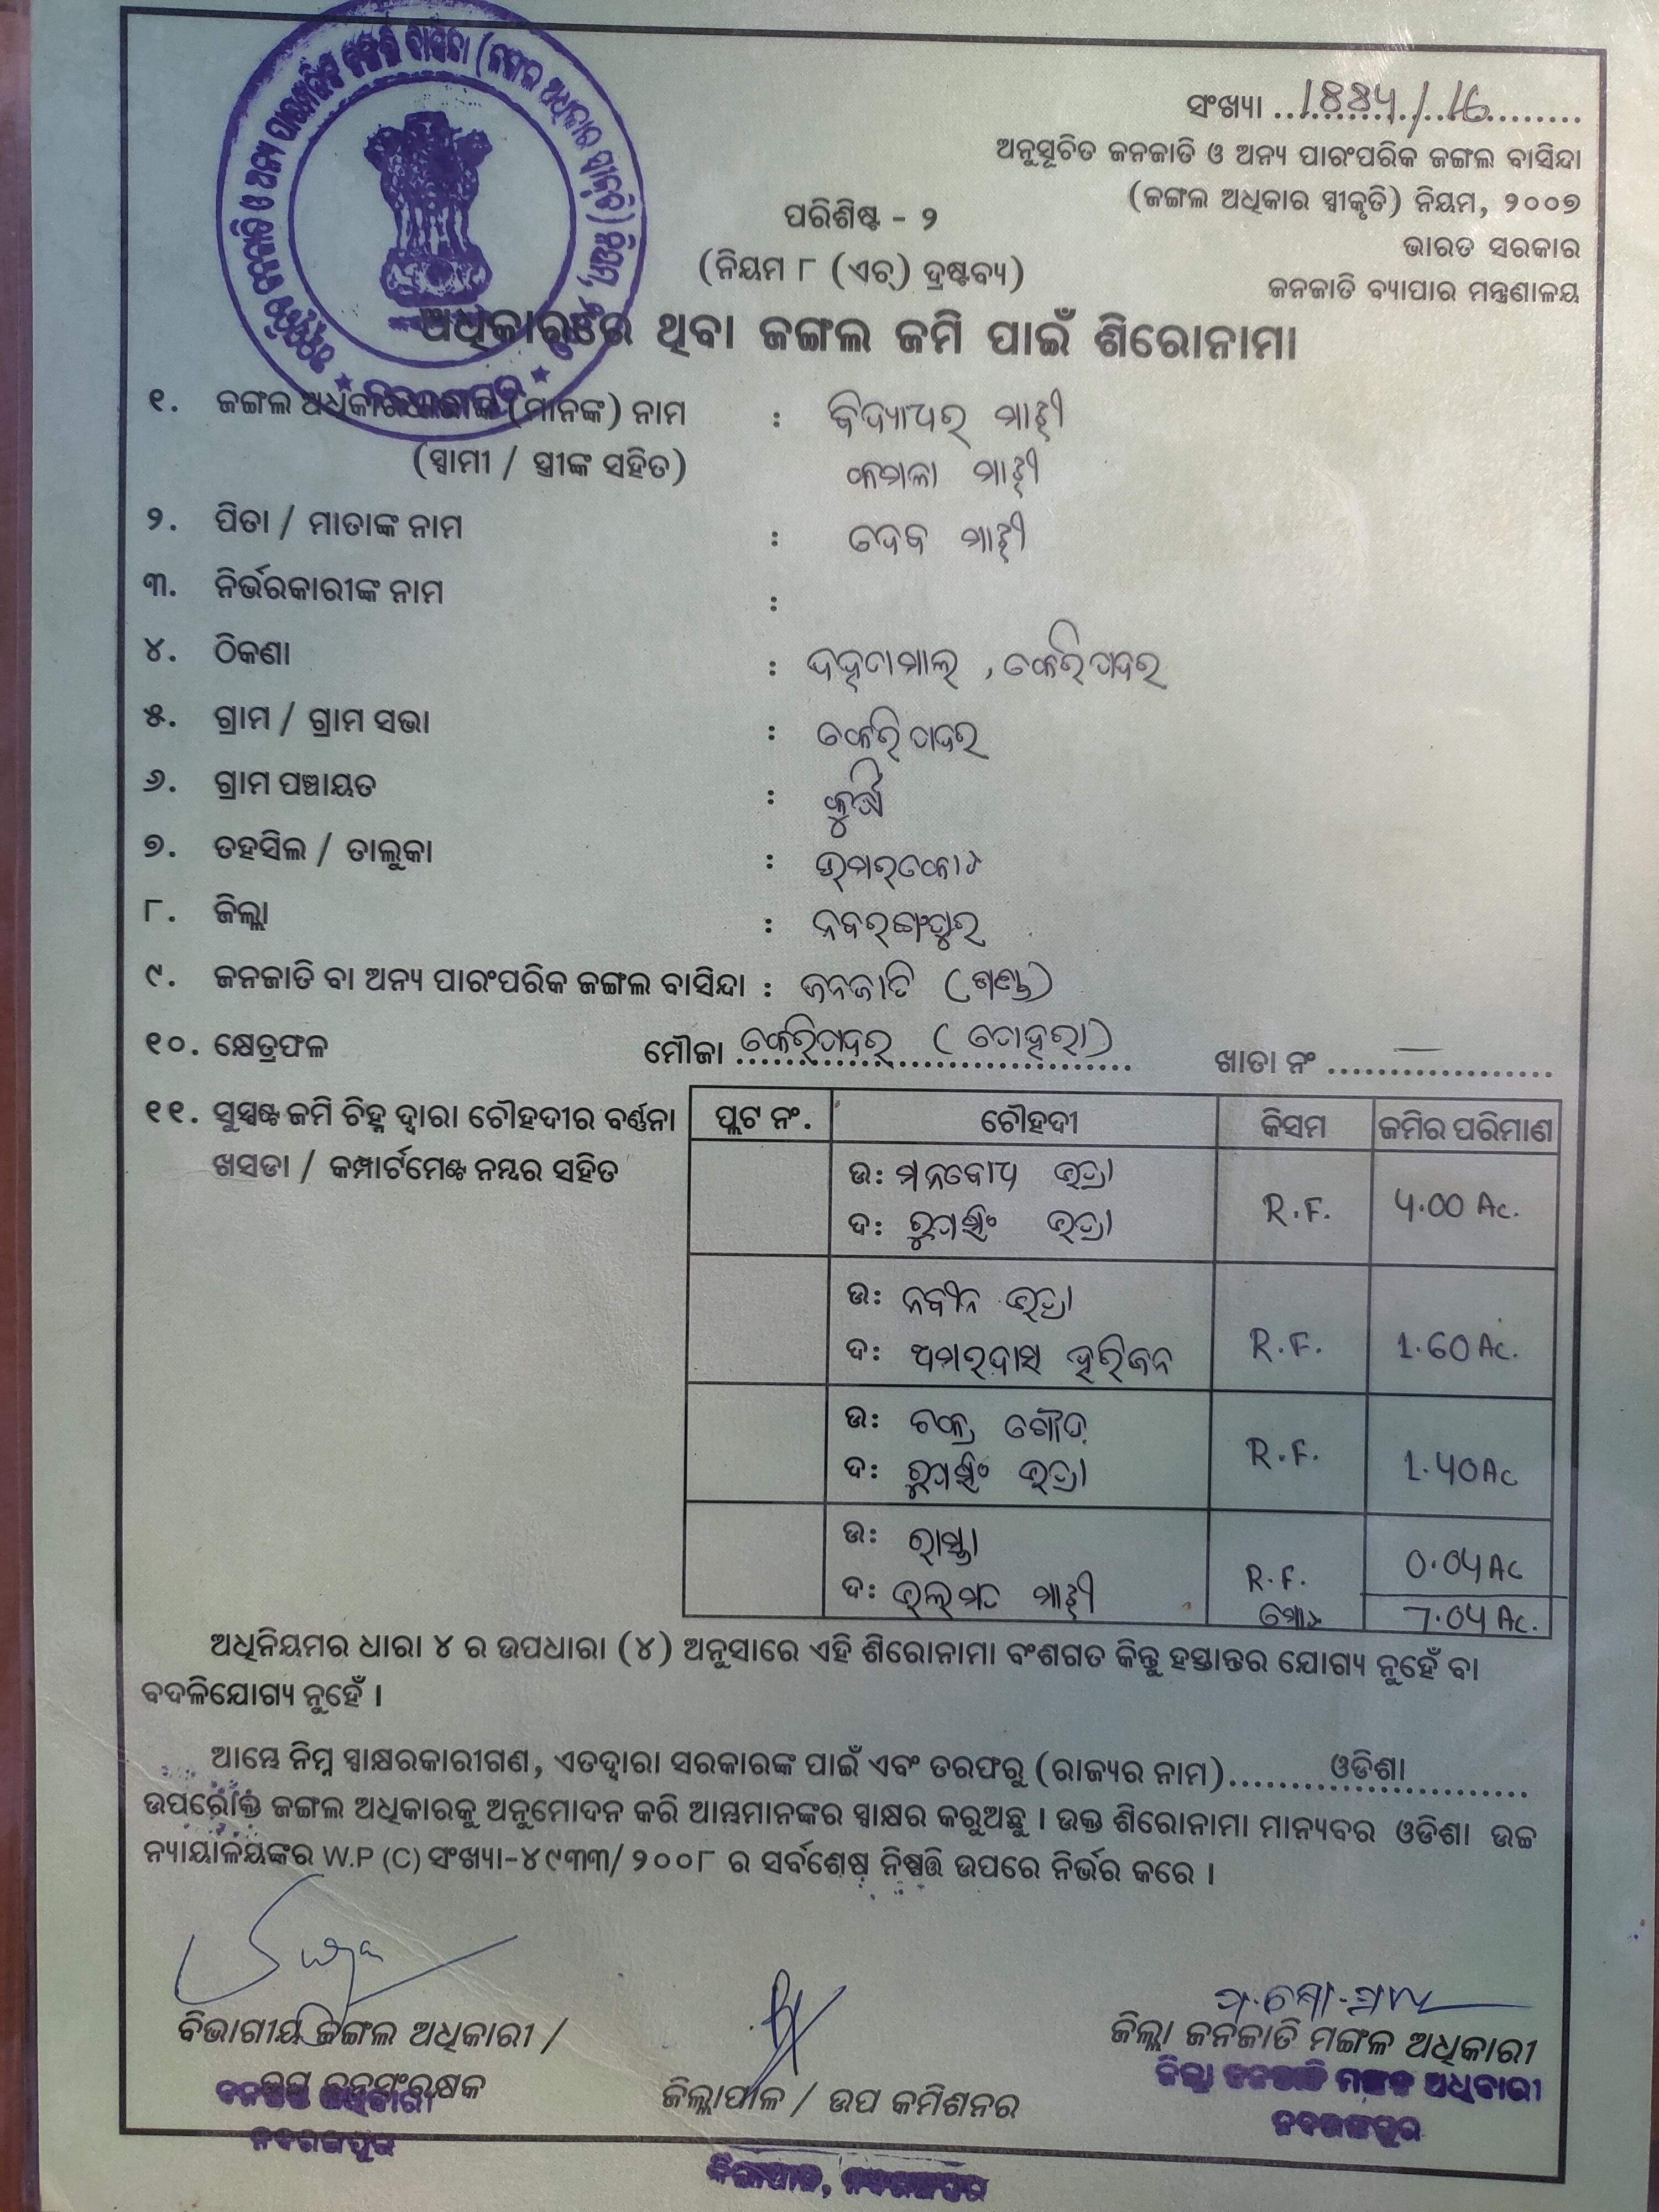 ସଂଖ୍ୟା
ଅନୁସୂଚିତ ଜନଜାତି ଓ ଅନ୍ୟ ପାରଂପରିକ ଜଙ୍ଗଲ ବାସିନ୍ଦା
(ଜଙ୍ଗଲ ଅଧିକାର ସ୍ୱୀକୃତି) ନିୟମ, ୨୦୦୭
ଭାରତ ସରକାର
ଜନଜାତି ବ୍ୟାପାର ମନ୍ତ୍ରଣାଳୟ
ପରିଶିଷ୍ଟ - ୨
(ନିୟମ ୮ (ଏଚ୍) ଦ୍ରଷ୍ଟବ୍ୟ)
ଅଧିକାରରେ ଥିବା ଜଙ୍ଗଲ ଜମି ପାଇଁ ଶିରୋନାମା
୧. ଜଙ୍ଗଲ ଅଧିକାରଧାରୀଙ୍କ (ମାନଙ୍କ) ନାମ : ବିଦ୍ୟାଧର ମାଝୀ
(ସ୍ୱାମୀ / ସ୍ତ୍ରୀଙ୍କ ସହିତ) କମଳା ମାଝୀ
୨. ପିତା / ମାତାଙ୍କ ନାମ : ଦେବ ମାଝୀ
୩. ନିର୍ଭରକାରୀଙ୍କ ନାମ :
୪. ଠିକଣା :
୫. ଗ୍ରାମ / ଗ୍ରାମ ସଭା :
୬. ଗ୍ରାମ ପଞ୍ଚାୟତ :
୭. ତହସିଲ / ତାଲୁକା : ଉମରକୋଟ
୮. ଜିଲ୍ଲା : ନବରଙ୍ଗପୁର
୯. ଜନଜାତି ବା ଅନ୍ୟ ପାରଂପରିକ ଜଙ୍ଗଲ ବାସିନ୍ଦା : ଜନଜାତି (ଗଣ୍ଡ)
୧୦. କ୍ଷେତ୍ରଫଳ ମୌଜା ଖାତା ନଂ
୧୧. ସୁସ୍ପଷ୍ଟ ଜମି ଚିହ୍ନ ଦ୍ୱାରା ଚୌହଦୀର ବର୍ଣ୍ଣନା
ଖସଡା / କମ୍ପାର୍ଟମେଣ୍ଟ ନମ୍ବର ସହିତ
ପ୍ଲଟ ନଂ. ଚୌହଦୀ କିସମ ଜମିର ପରିମାଣ
ଉ: ମନବୋଧ ଭତ୍ରା
ଦ: ରୁପସିଂ ଭତ୍ରା
R.F. ୪.00 Ac.
ଉ: ନବୀନ ଭତ୍ରା
ଦ: ଅମରଦାସ ହରିଜନ
R.F. 1.60 Ac.
ଉ: ଚକ୍ର ଗୌଡ
ଦ: ରୁପସିଂ ଭତ୍ରା
R.F. 1.40 Ac
ଉ: ରାସ୍ତା
ଦ: ମାଝୀ
R.F. 0.04 Ac
ମୋଟ 7.04 Ac.
ଅଧିନିୟମର ଧାରା ୪ ର ଉପଧାରା (୪) ଅନୁସାରେ ଏହି ଶିରୋନାମା ବଂଶଗତ କିନ୍ତୁ ହସ୍ତାନ୍ତର ଯୋଗ୍ୟ ନୁହେଁ ବା
ବଦଳିଯୋଗ୍ୟ ନୁହେଁ ।
ଆମ୍ଭେ ନିମ୍ନ ସ୍ୱାକ୍ଷରକାରୀଗଣ, ଏତଦ୍ୱାରା ସରକାରଙ୍କ ପାଇଁ ଏବଂ ତରଫରୁ (ରାଜ୍ୟର ନାମ) ଓଡିଶା
ଉପରୋକ୍ତ ଜଙ୍ଗଲ ଅଧିକାରକୁ ଅନୁମୋଦନ କରି ଆମ୍ଭମାନଙ୍କର ସ୍ୱାକ୍ଷର କରୁଅଛୁ । ଉକ୍ତ ଶିରୋନାମା ମାନ୍ୟବର ଓଡିଶା ଉଚ୍ଚ
ନ୍ୟାୟାଳୟଙ୍କର W.P (C) ସଂଖ୍ୟା-୪୯୩୩/ ୨୦୦୮ ର ସର୍ବଶେଷ ନିଷ୍ପତ୍ତି ଉପରେ ନିର୍ଭର କରେ ।
ବିଭାଗୀୟ ଜଙ୍ଗଲ ଅଧିକାରୀ /
ଉପ ବନସଂରକ୍ଷକ
ଜିଲ୍ଲାପାଳ / ଉପ କମିଶନର
ଜିଲ୍ଲା ଜନଜାତି ମଙ୍ଗଳ ଅଧିକାରୀ
ଜିଲ୍ଲା ଜନଜାତି ମଙ୍ଗଳ ଅଧିକାରୀ
ନବରଙ୍ଗପୁର
ନବରଙ୍ଗପୁର
ଜିଲ୍ଲାପାଳ, ନବରଙ୍ଗପୁର